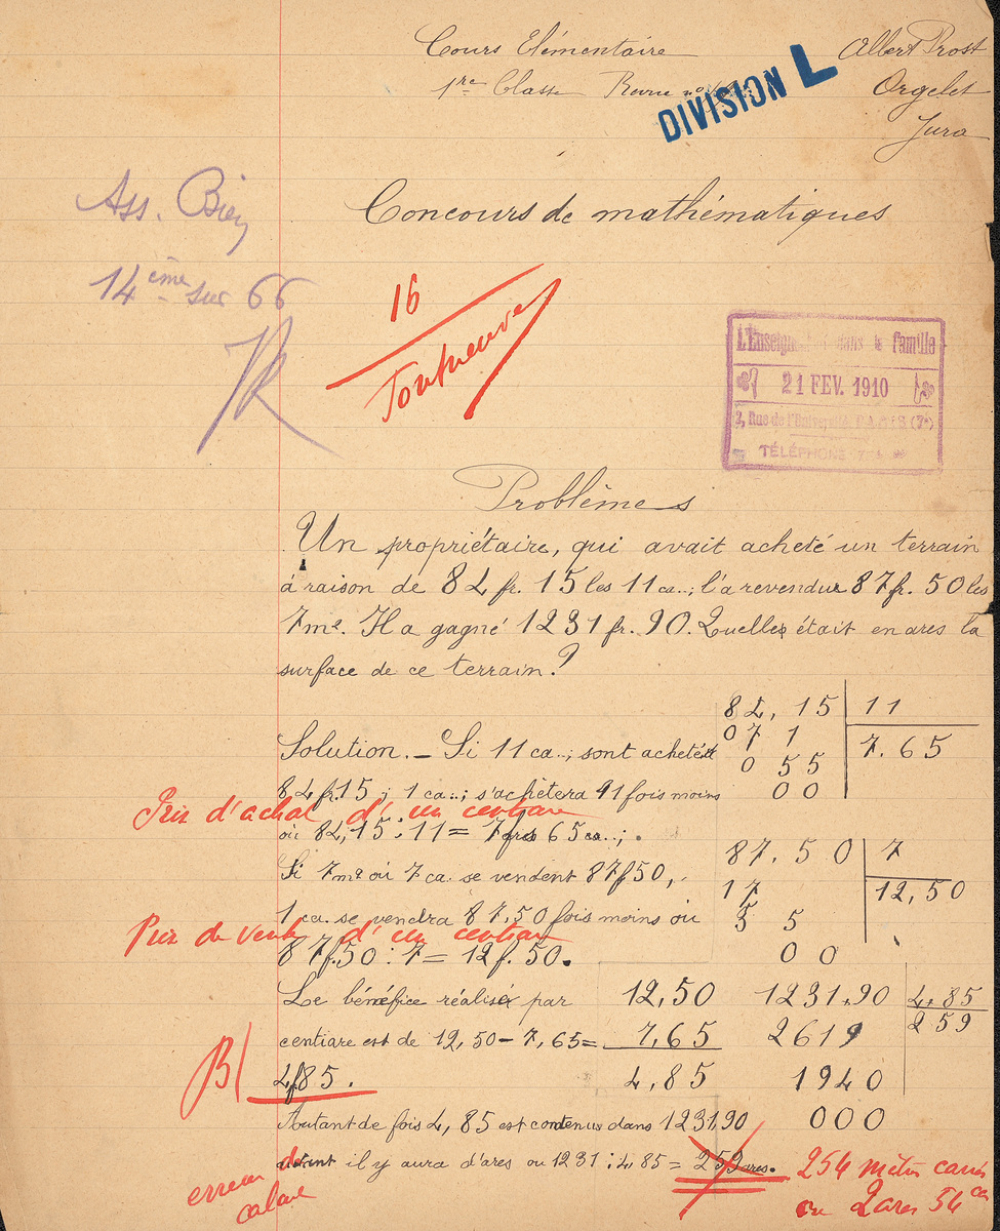 Cours Elémentaire Albert Prost
1re Classe Orgelet
DIVISION L
Jura
Ass. Bien
14ème sur 66
Concours de mathématiques
16
L'Enseignement dans la famille
21 FEV. 1910
2, Rue de l'Université, PARIS (7e)
TÉLÉPHONE
Problèmes
Un propriétaire, qui avait acheté un terrain
à raison de 84 fr. 15 les 11 ca..; l'a revendu 87 fr. 50 les
7 m2. Il a gagné 1231 fr. 90. Quelles était en ares la
surface de ce terrain?
84,15 | 11
07 1 | 7.65
0 55
00
Solution. _ Si 11 ca..; sont achetés
84 fr 15; 1 ca..; s'achètera 11 fois moins
Prix d'achat d'un centiare
où 84,15 : 11 = 7 frs 65 ca..;.
87.50 | 7
17 | 12,50
3 5
00
Si 7 m2 où 7 ca. se vendent 87f50,
1 ca. se vendra 87,50 fois moins où
Prix de vente d'un centiare
87f.50 : 7 = 12f.50.
Le bénéfice réalisé par
centiare est de 12,50 - 7,65 =
4f85.
B
12,50
7,65
4,85
1231,90 | 4,85
2619 | 259
1940
000
Autant de fois 4,85 est contenu dans 1231,90
autant il y aura d'ares ou 1231 : 4,85 = 259 ares.
erreur de
calcul
254 mètres carrés
ou 2 ares 54 ces